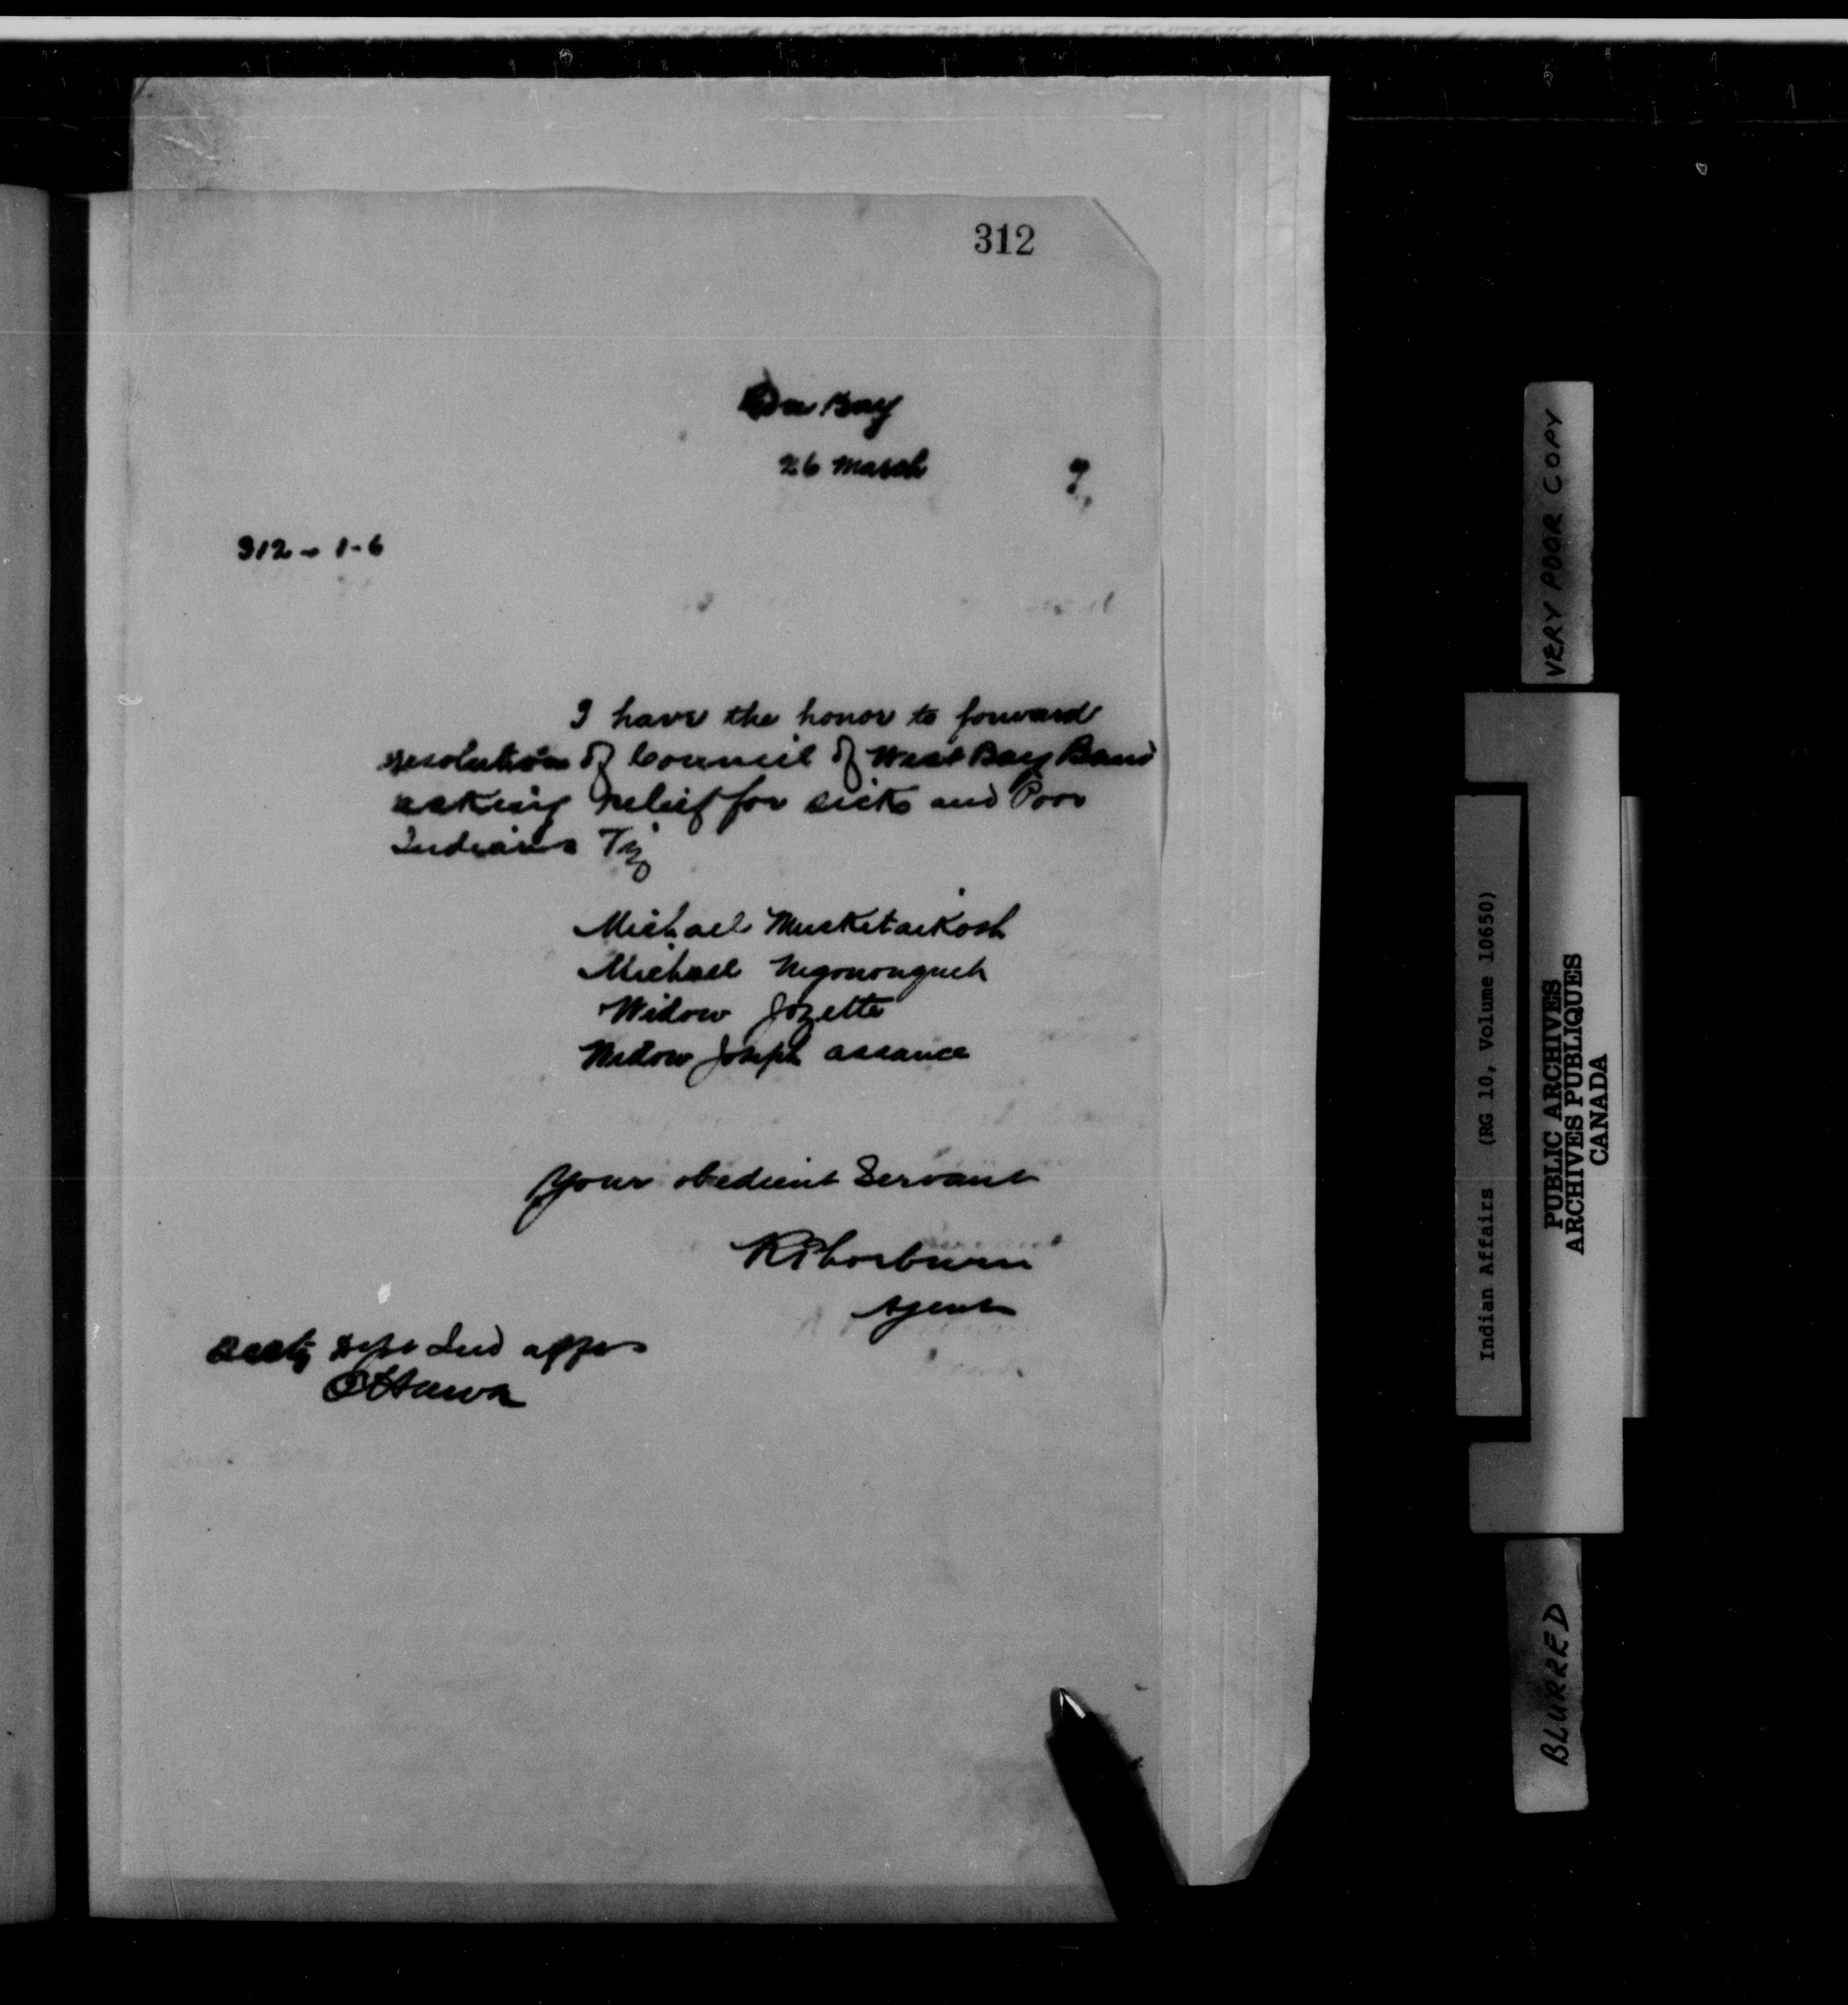 312
Bay
26 March 9,
312 - 1-6
I have the honor to forward
resolution of Council of West Bay Band
asking relief for sick and Poor
Indians Viz
Michael
Michael
Widow Jozette
Widow Joseph assance
Your obedient Servant
R Thorburn
Agent
Secty Dept Ind affrs
Ottawa
VERY POOR COPY
Indian Affairs (RG 10, Volume 10650)
PUBLIC ARCHIVES
ARCHIVES PUBLIQUES
CANADA
BLURRED